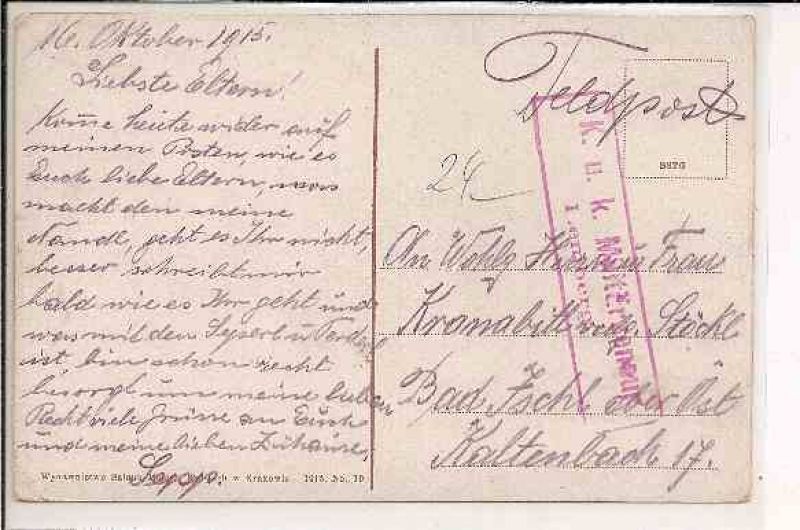 16. Oktober 1915.
Liebste Eltern!
Komme heute wider auf
meinen Posten, wie es
Euch liebe Eltern, was
macht den meine
Nandl, geht es Ihr nicht,
besser schreibt mir
bald wie es Ihr geht und
was mit den Seperl u Ferdl
ist, bin schon recht
besorgt um meine lieben
Recht viele Grüsse an Euch
und meine lieben Zuhause,
Sepp.
Wydawnictwo w Krakowie 1915. No. 10
Feldpost
BETG
24
K. u. k. Militärzensur
Lemberg
An Wohlg Herrn u Frau
Kranabitt Stöckl
Bad Ischl ober Öst
Kaltenbach 17.